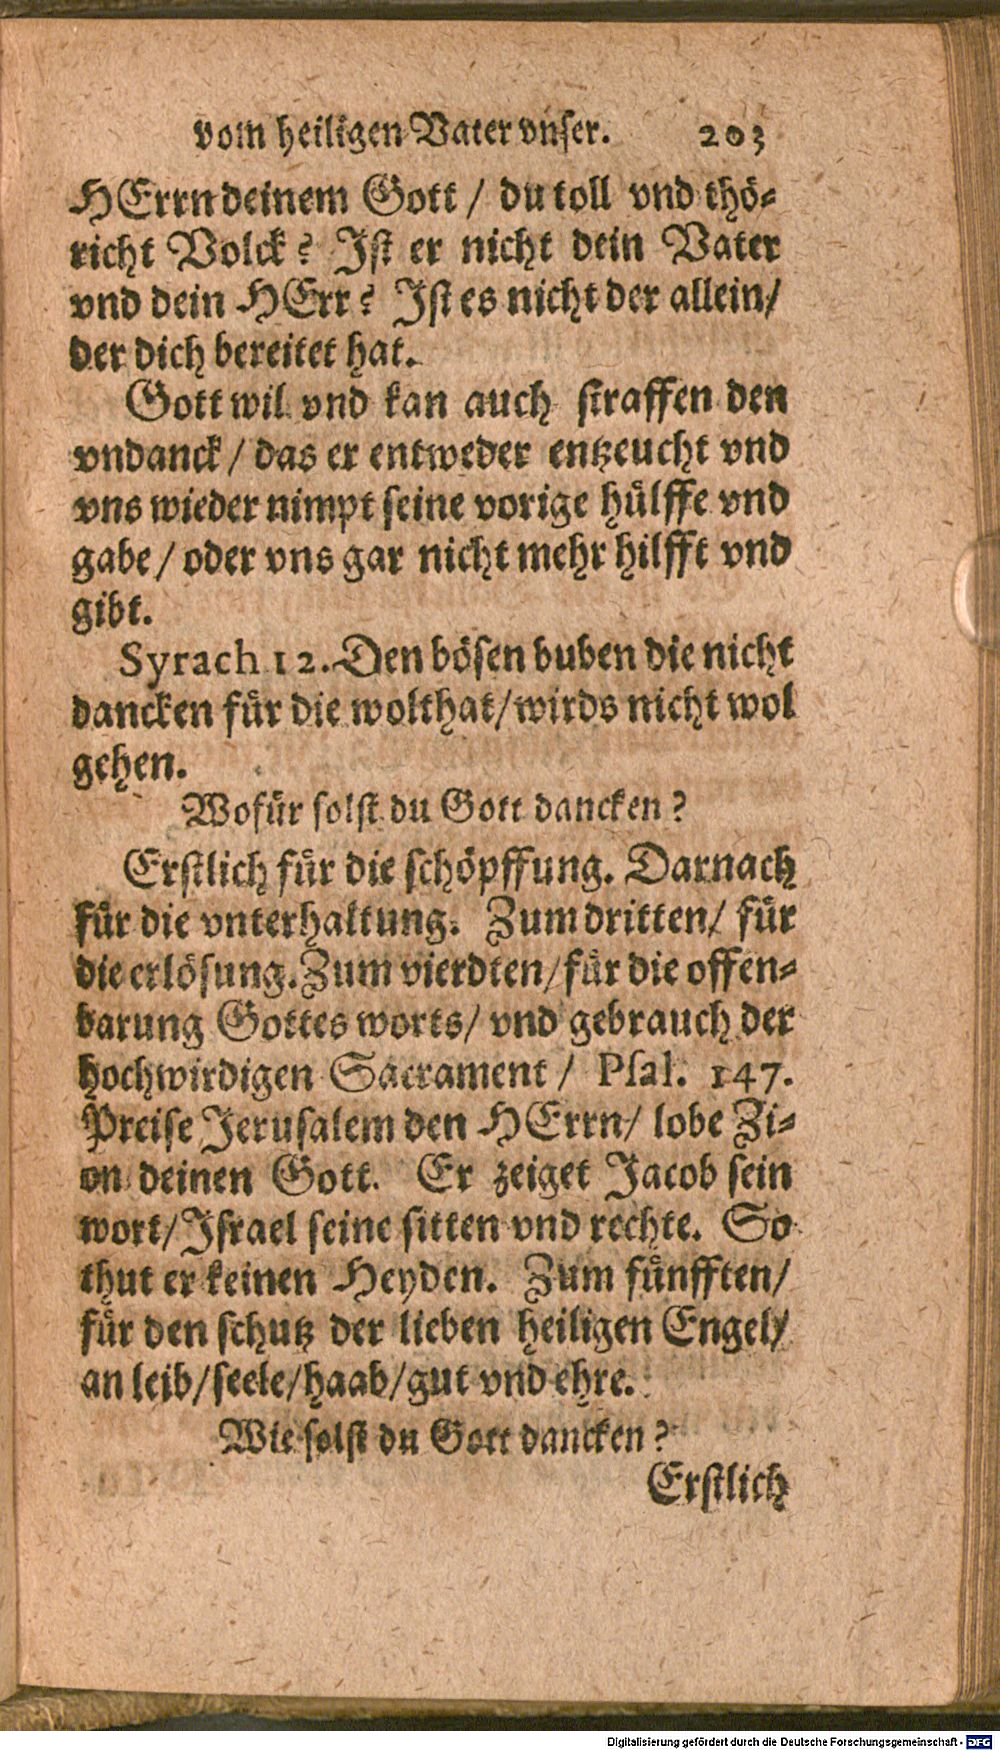 vom heiligen Vater vnser. 203
HErrn deinem Gott / du toll vnd thö-
richt Volck? Ist er nicht dein Vater
vnd dein HErr? Ist es nicht der allein/
der dich bereitet hat.
Gott wil vnd kan auch straffen den
vndanck / das er entweder entzeucht vnd
vns wieder nimpt seine vorige hülffe vnd
gabe / oder vns gar nicht mehr hilfft vnd
gibt.
Syrach 12. Den bösen buben die nicht
dancken für die wolthat/ wirds nicht wol
gehen.
Wofür solst du Gott dancken?
Erstlich für die schöpffung. Darnach
für die vnterhaltung. Zum dritten/ für
die erlösung. Zum vierdten/ für die offen-
barung Gottes worts/ vnd gebrauch der
hochwirdigen Sacrament / Psal. 147.
Preise Jerusalem den HErrn/ lobe Zi-
on deinen Gott. Er zeiget Jacob sein
wort/ Israel seine sitten vnd rechte. So
thut er keinen Heyden. Zum fünfften/
für den schutz der lieben heiligen Engel/
an leib/ seele/ haab/ gut vnd ehre.
Wie solst du Gott dancken?
Erstlich
Digitalisierung gefördert durch die Deutsche Forschungsgemeinschaft - DFG